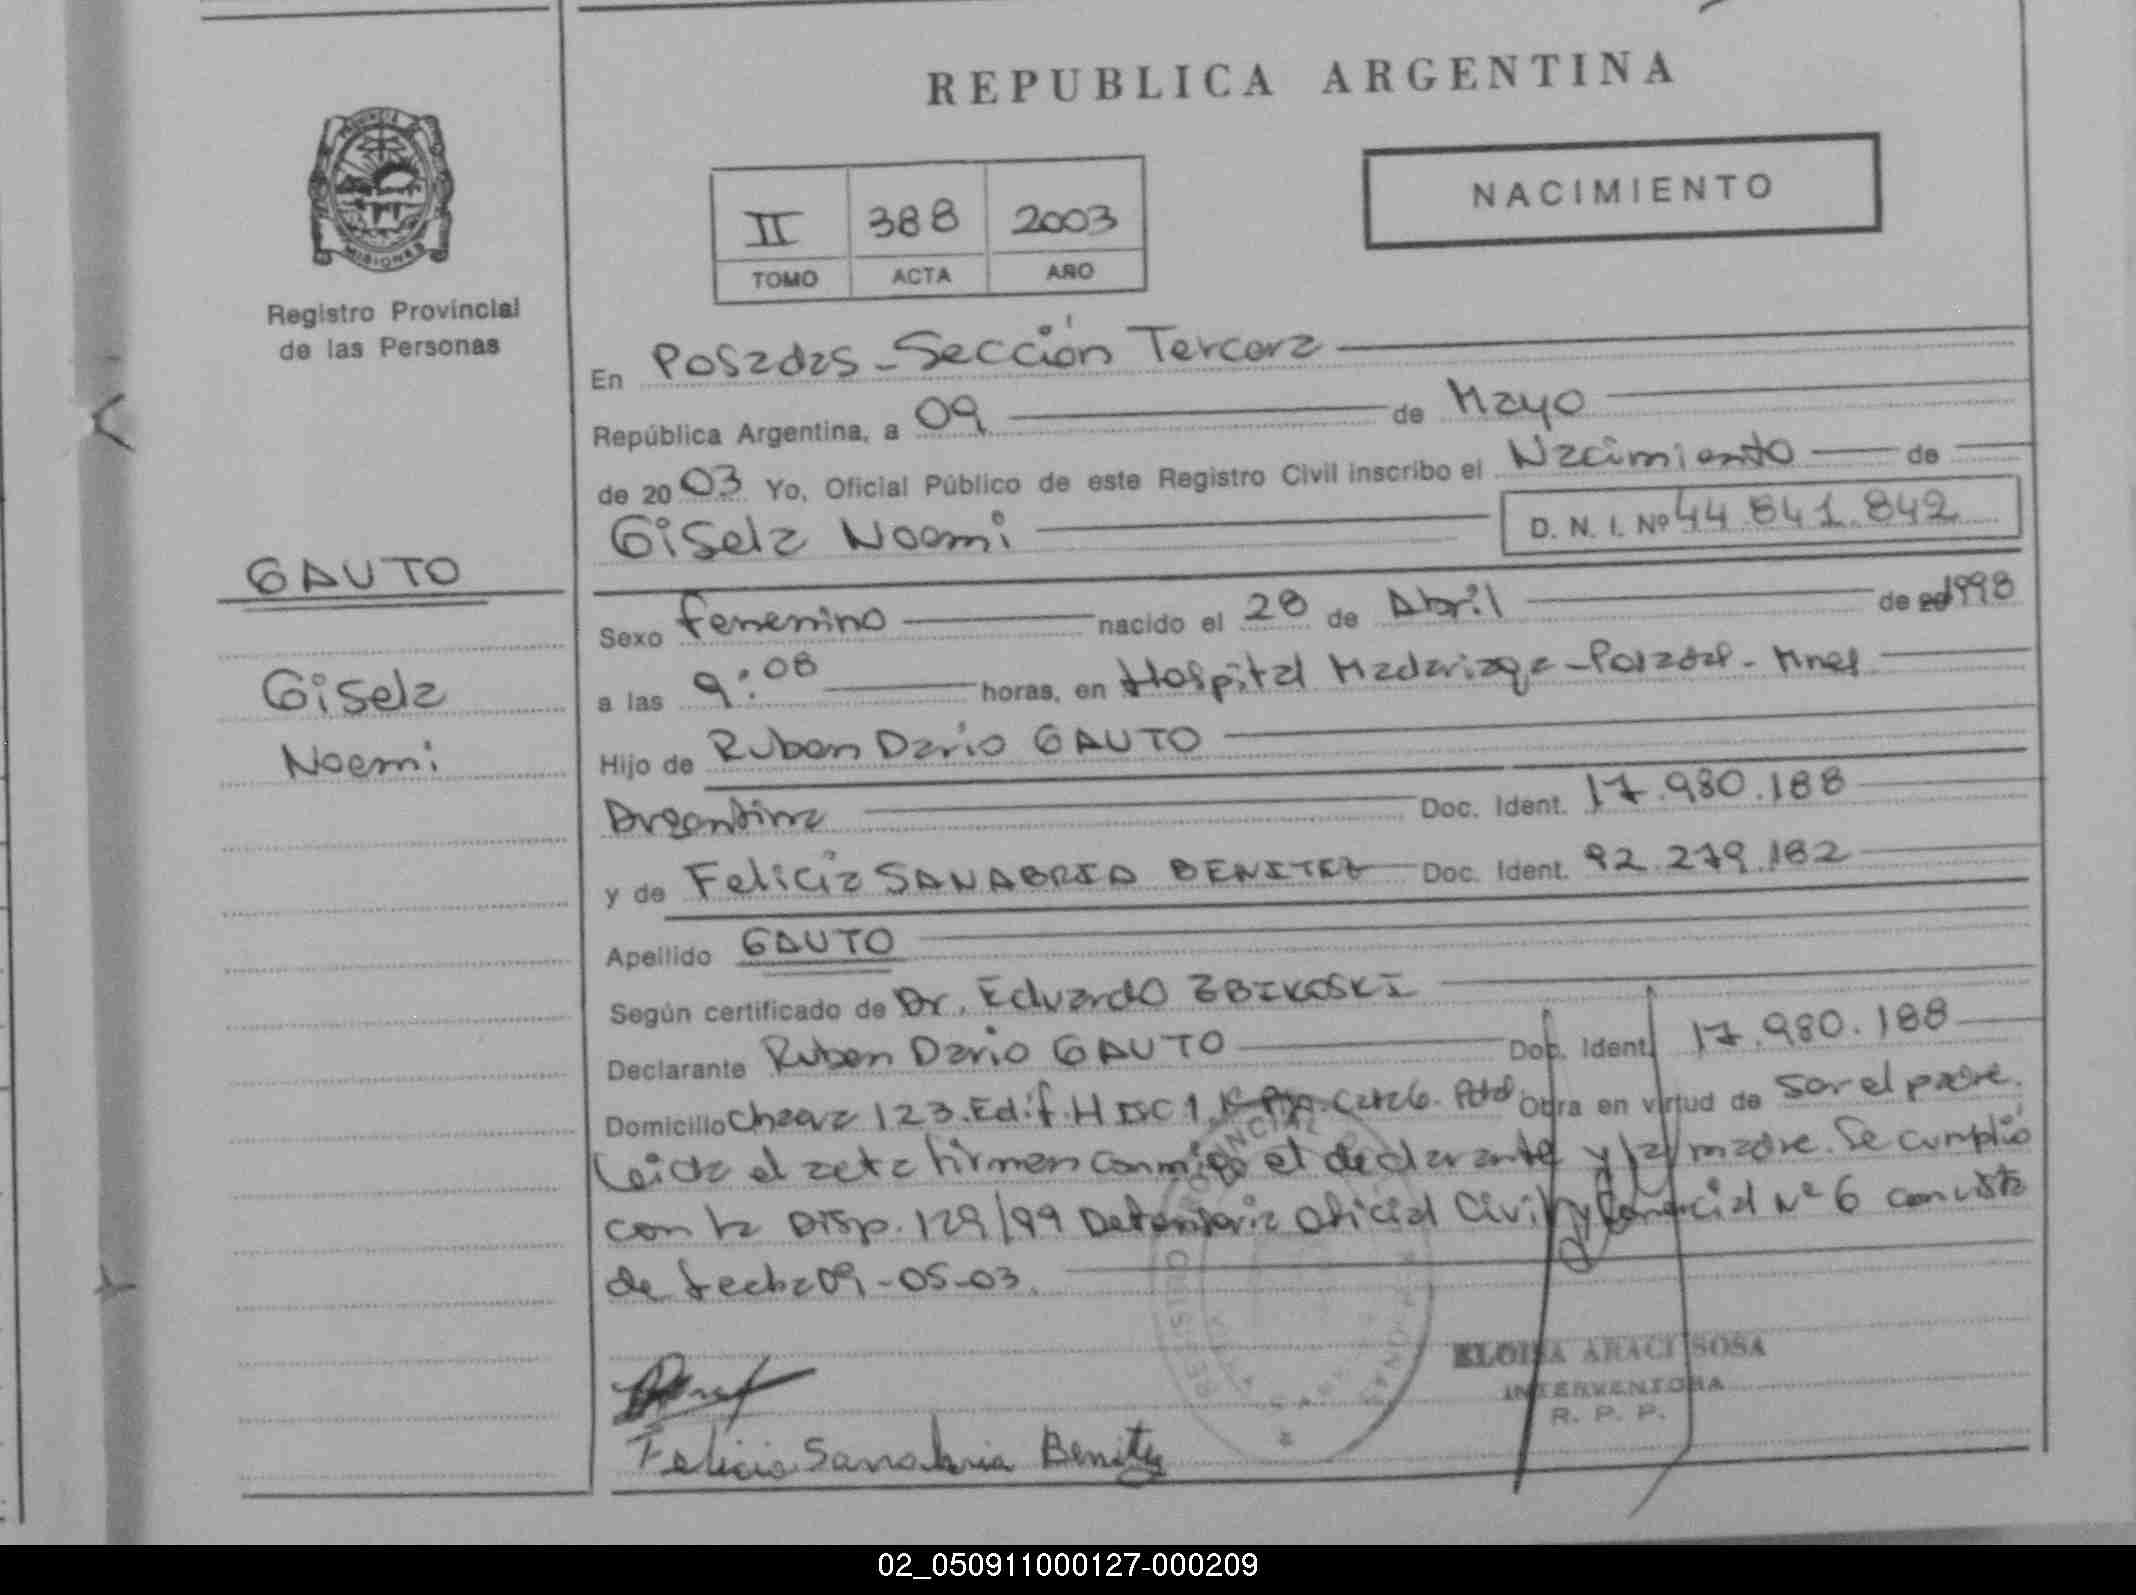 REPUBLICA ARGENTINA
NACIMIENTO
II 388 2003
TOMO ACTA AÑO
Registro Provincial
de las Personas
GAUTO
Gisela
Noemi
En Posadas - Sección Tercera
República Argentina, a 09 de Mayo
de 2003 Yo, Oficial Público de este Registro Civil inscribo el Nacimiento de
Gisela Noemi D. N. I. Nº 44.841.842
Sexo femenino nacido el 28 de Abril de 1998
a las 9:08 horas, en Hospital Madariaga - Posadas - Mnes
Hijo de Ruben Dario GAUTO
Argentina Doc. Ident. 17.980.188
y de Felicia SANABRIA BENITEZ Doc. Ident. 92.279.182
Apellido GAUTO
Según certificado de Dr. Eduardo ZBIKOSKI
Declarante Ruben Dario GAUTO Doc. Ident. 17.980.188
Domicilio 123. Edif. H Obra en virtud de ser el padre.
Leida el acta firman conmigo el declarante y la madre. Se cumplió
con la Disp. 129/99 Defensoria Oficial Civil y Comercial Nº 6 con vista
de fecha 09-05-03.
Felicia Sanabria Benitez
INTERVENTORA
R. P. P.
02_050911000127-000209